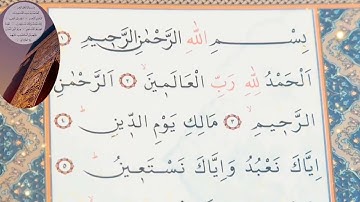 بِسْمِ اللّٰهِ الرَّحْمٰنِ الرَّحٖيمِ ﴿١﴾
اَلْحَمْدُ لِلّٰهِ رَبِّ الْعَالَمٖينَۙ ﴿٢﴾ اَلرَّحْمٰنِ
الرَّحٖيمِۙ ﴿٣﴾ مَالِكِ يَوْمِ الدّٖينِؕ ﴿٤﴾
اِيَّاكَ نَعْبُدُ وَاِيَّاكَ نَسْتَعٖينُؕ ﴿٥﴾